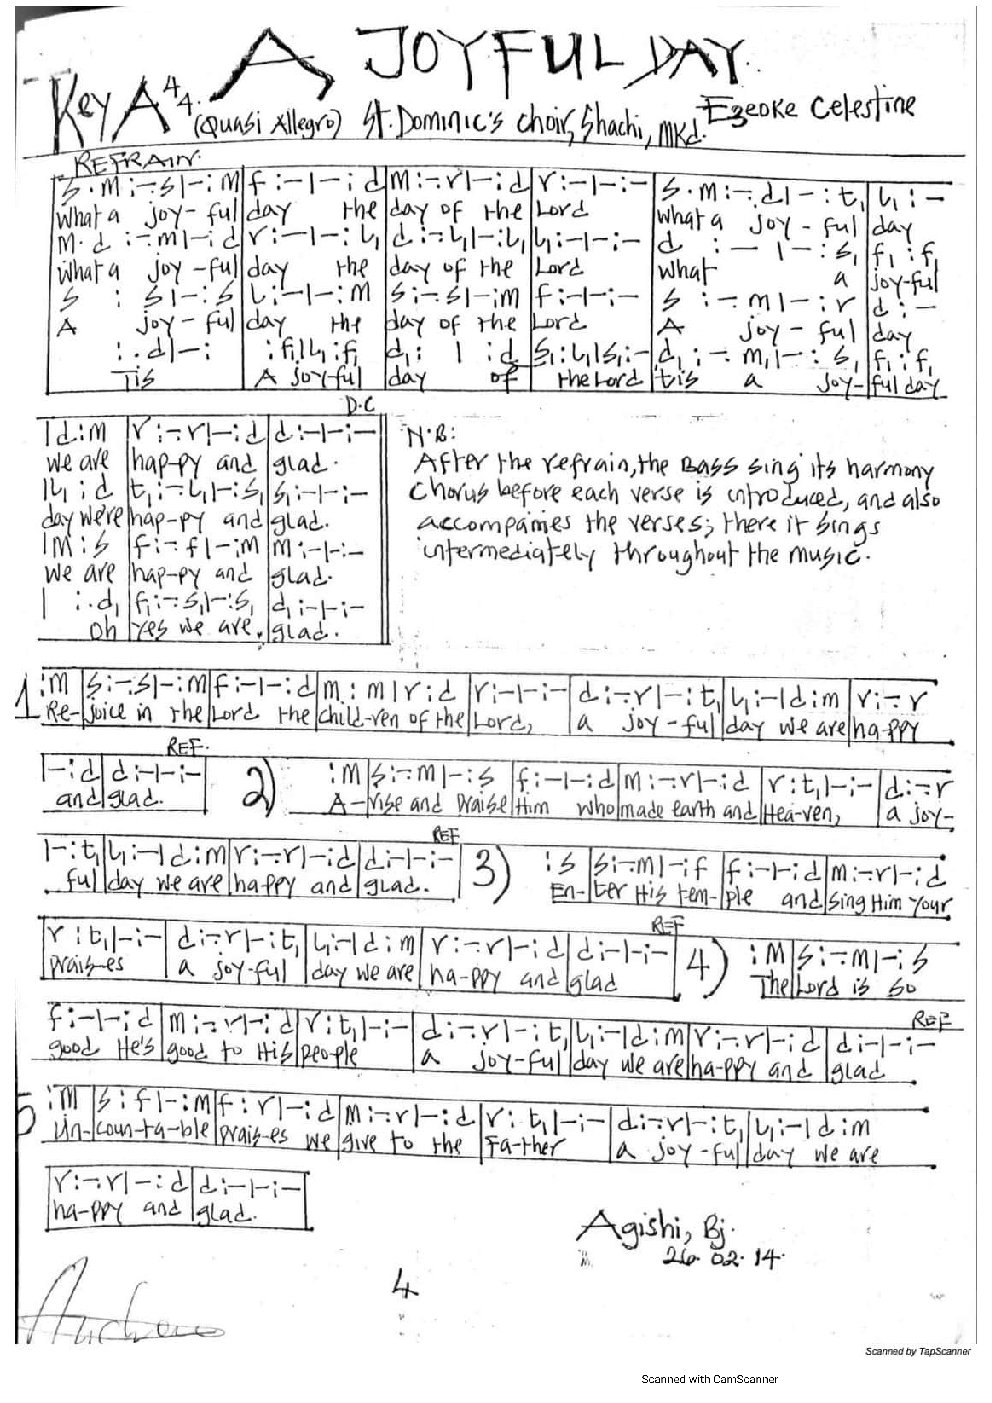 A JOYFUL DAY
Key A 4 4. (Quasi Allegro) St. Dominic's choir, Shachi, Mkd. Ezeoke Celestine
REFRAIN.
s . m : -. s | - : m | f : - | - : d | m : -. r | - : d | r : - | - : - | s . m : -. d | - : t₁ | l₁ : -
What a joy-ful | day the | day of the | Lord | what a joy-ful | day
m . d : -. m | - : d | r : - | - : l₁ | d : -. l₁ | - : l₁ | l₁ : - | - : - | d : - | - : s₁ | f₁ : f₁
What a joy-ful | day the | day of the | Lord | what a | joy-ful
s : s | - : s | l : - | - : m | s : -. s | - : m | f : - | - : - | s : -. m | - : r | d : -
A joy-ful | day the | day of the | Lord | A joy-ful | day
: . d | - : | : f₁ | l₁ : f₁ | d₁ : | : d | s₁ : l₁ | s₁ : - | d₁ : -. m₁ | - : s₁ | f₁ : f₁
Tis | A joy-ful | day of | the Lord | tis a joy- | ful day
D.C
| d : m | r : -. r | - : d | d : - | - : - |
we are | hap-py and | glad.
| l₁ : d | t₁ : -. l₁ | - : s₁ | s₁ : - | - : -
day we're | hap-py and | glad.
| m : s | f : -. f | - : m | m : - | - : -
we are | hap-py and | glad.
| : . d₁ | f₁ : -. s₁ | - : s₁ | d₁ : - | - : -
Oh | yes we are. | glad.
N.B:
After the refrain, the Bass sing its harmony
chorus before each verse is introduced, and also
accompanies the verses; there it sings
intermediately throughout the music.
1 : m | s : -. s | - : m | f : - | - : d | m : m | r : d | r : - | - : - | d : -. r | - : t₁ | l₁ : - | d : m | r : -. r
Re- | joice in the | Lord the | child-ren of the | Lord, | a joy-ful | day we are | ha-ppy
REF.
| - : d | d : - | - : - |
and | glad.
2) : m | s : -. m | - : s | f : - | - : d | m : -. r | - : d | r : t₁ | - : - | d : -. r
A- | rise and praise | Him who | made earth and | Hea-ven, | a joy-
REF
| - : t₁ | l₁ : - | d : m | r : -. r | - : d | d : - | - : - |
ful | day we are | happy and | glad.
3) : s | s : -. m | - : f | f : - | - : d | m : -. r | - : d
En- | ter His tem- | ple and | sing Him your
REF
r : t₁ | - : - | d : -. r | - : t₁ | l₁ : - | d : m | r : -. r | - : d | d : - | - : - |
praises | a joy-ful | day we are | ha-ppy and | glad
4) : m | s : -. m | - : s
The | Lord is so
REF
f : - | - : d | m : -. r | - : d | r : t₁ | - : - | d : -. r | - : t₁ | l₁ : - | d : m | r : -. r | - : d | d : - | - : -
good He's | good to His | people | a joy-ful | day we are | ha-ppy and | glad
5 : m | s : f | - : m | f : r | - : d | m : -. r | - : d | r : t₁ | - : - | d : -. r | - : t₁ | l₁ : - | d : m
Un- | coun-ta-ble | prais-es we | give to the | Fa-ther | a joy-ful | day we are
r : -. r | - : d | d : - | - : - |
ha-ppy and | glad.
Agishi, Bj.
26.02.14.
4
Scanned by TapScanner
Scanned with CamScanner